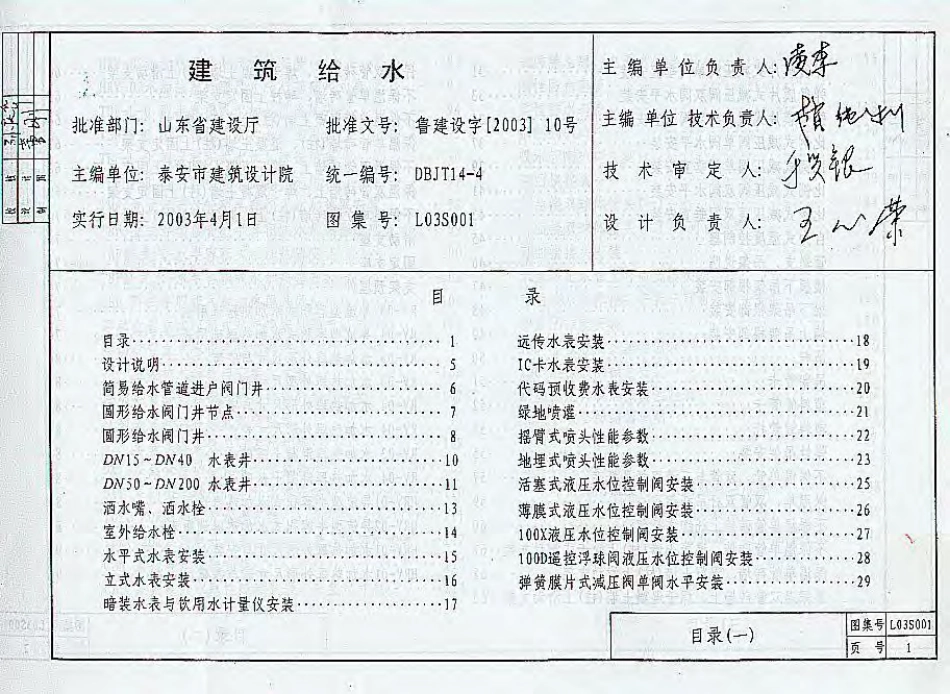 建筑给水
批准部门: 山东省建设厅 批准文号: 鲁建设字[2003] 10号
主编单位: 泰安市建筑设计院 统一编号: DBJT14-4
实行日期: 2003年4月1日 图集号: L03S001
主编单位负责人:
主编单位技术负责人:
技术审定人:
设计负责人:
目录
目录 1
设计说明 5
简易给水管道进户阀门井 6
圆形给水阀门井节点 7
圆形给水阀门井 8
DN15~DN40 水表井 10
DN50~DN200 水表井 11
洒水嘴、洒水栓 13
室外给水栓 14
水平式水表安装 15
立式水表安装 16
暗装水表与饮用水计量仪安装 17
远传水表安装 18
IC卡水表安装 19
代码预收费水表安装 20
绿地喷灌 21
摇臂式喷头性能参数 22
地埋式喷头性能参数 23
活塞式液压水位控制阀安装 25
薄膜式液压水位控制阀安装 26
100X液压水位控制阀安装 27
100D遥控浮球阀液压水位控制阀安装 28
弹簧膜片式减压阀单阀水平安装 29
目录(一)
图集号 L03S001
页号 1